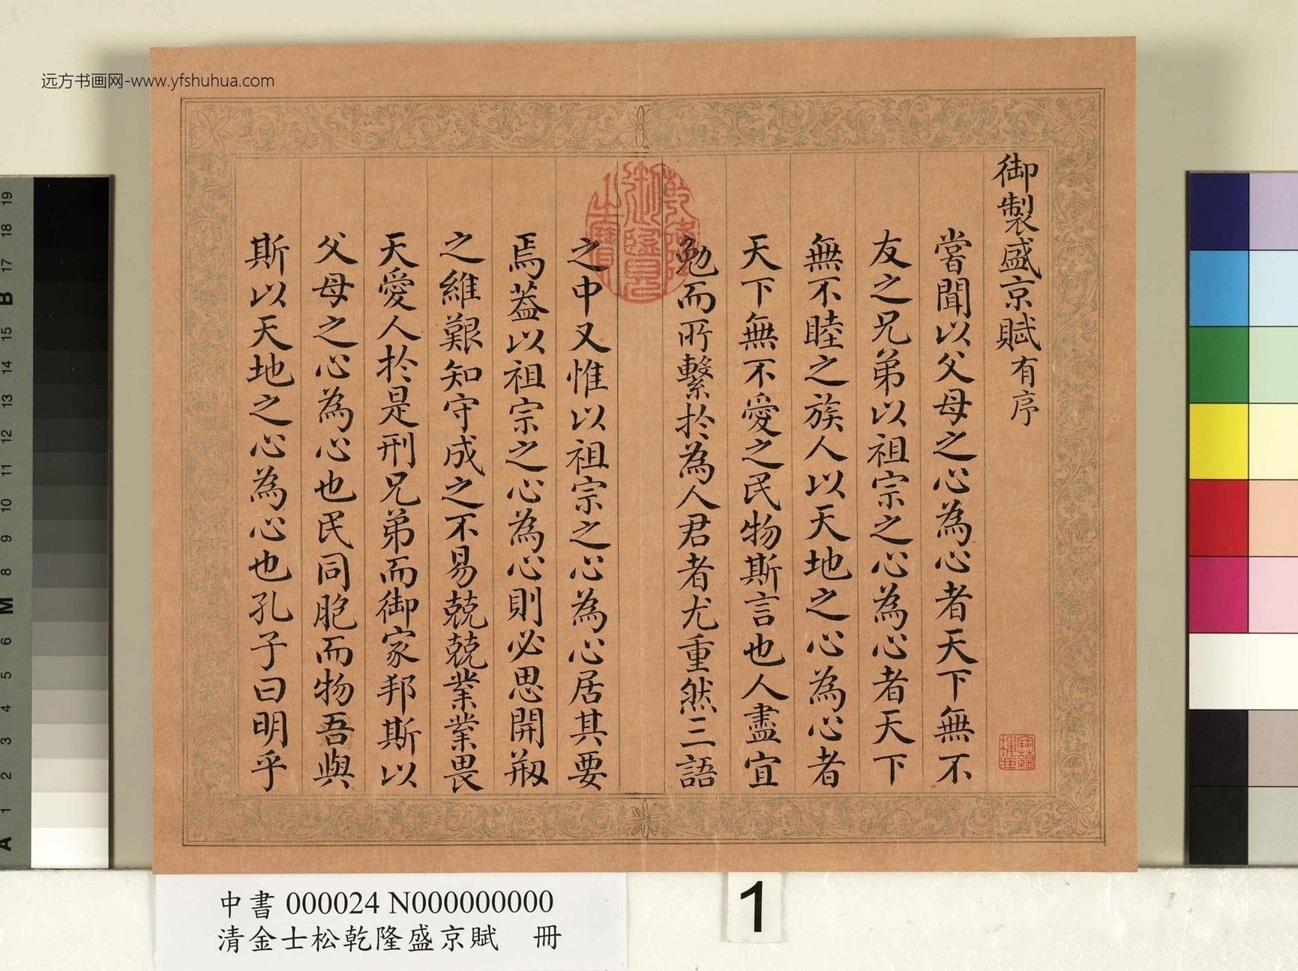 远方书画网-www.yfshuhua.com
御製盛京賦有序
嘗聞以父母之心為心者天下無不
友之兄弟以祖宗之心為心者天下
無不睦之族人以天地之心為心者
天下無不愛之民物斯言也人盡宜
勉而所繫於為人君者尤重然三語
之中又惟以祖宗之心為心居其要
焉蓋以祖宗之心為心則必思開剏
之維艱知守成之不易兢兢業業畏
天愛人於是刑兄弟而御家邦斯以
父母之心為心也民同胞而物吾與
斯以天地之心為心也孔子曰明乎
乾隆御覽之寶
中書 000024 N000000000
清金士松乾隆盛京賦 冊
1
19
18
17
B
15
14
13
12
11
10
9
8
M
6
5
4
3
2
1
A